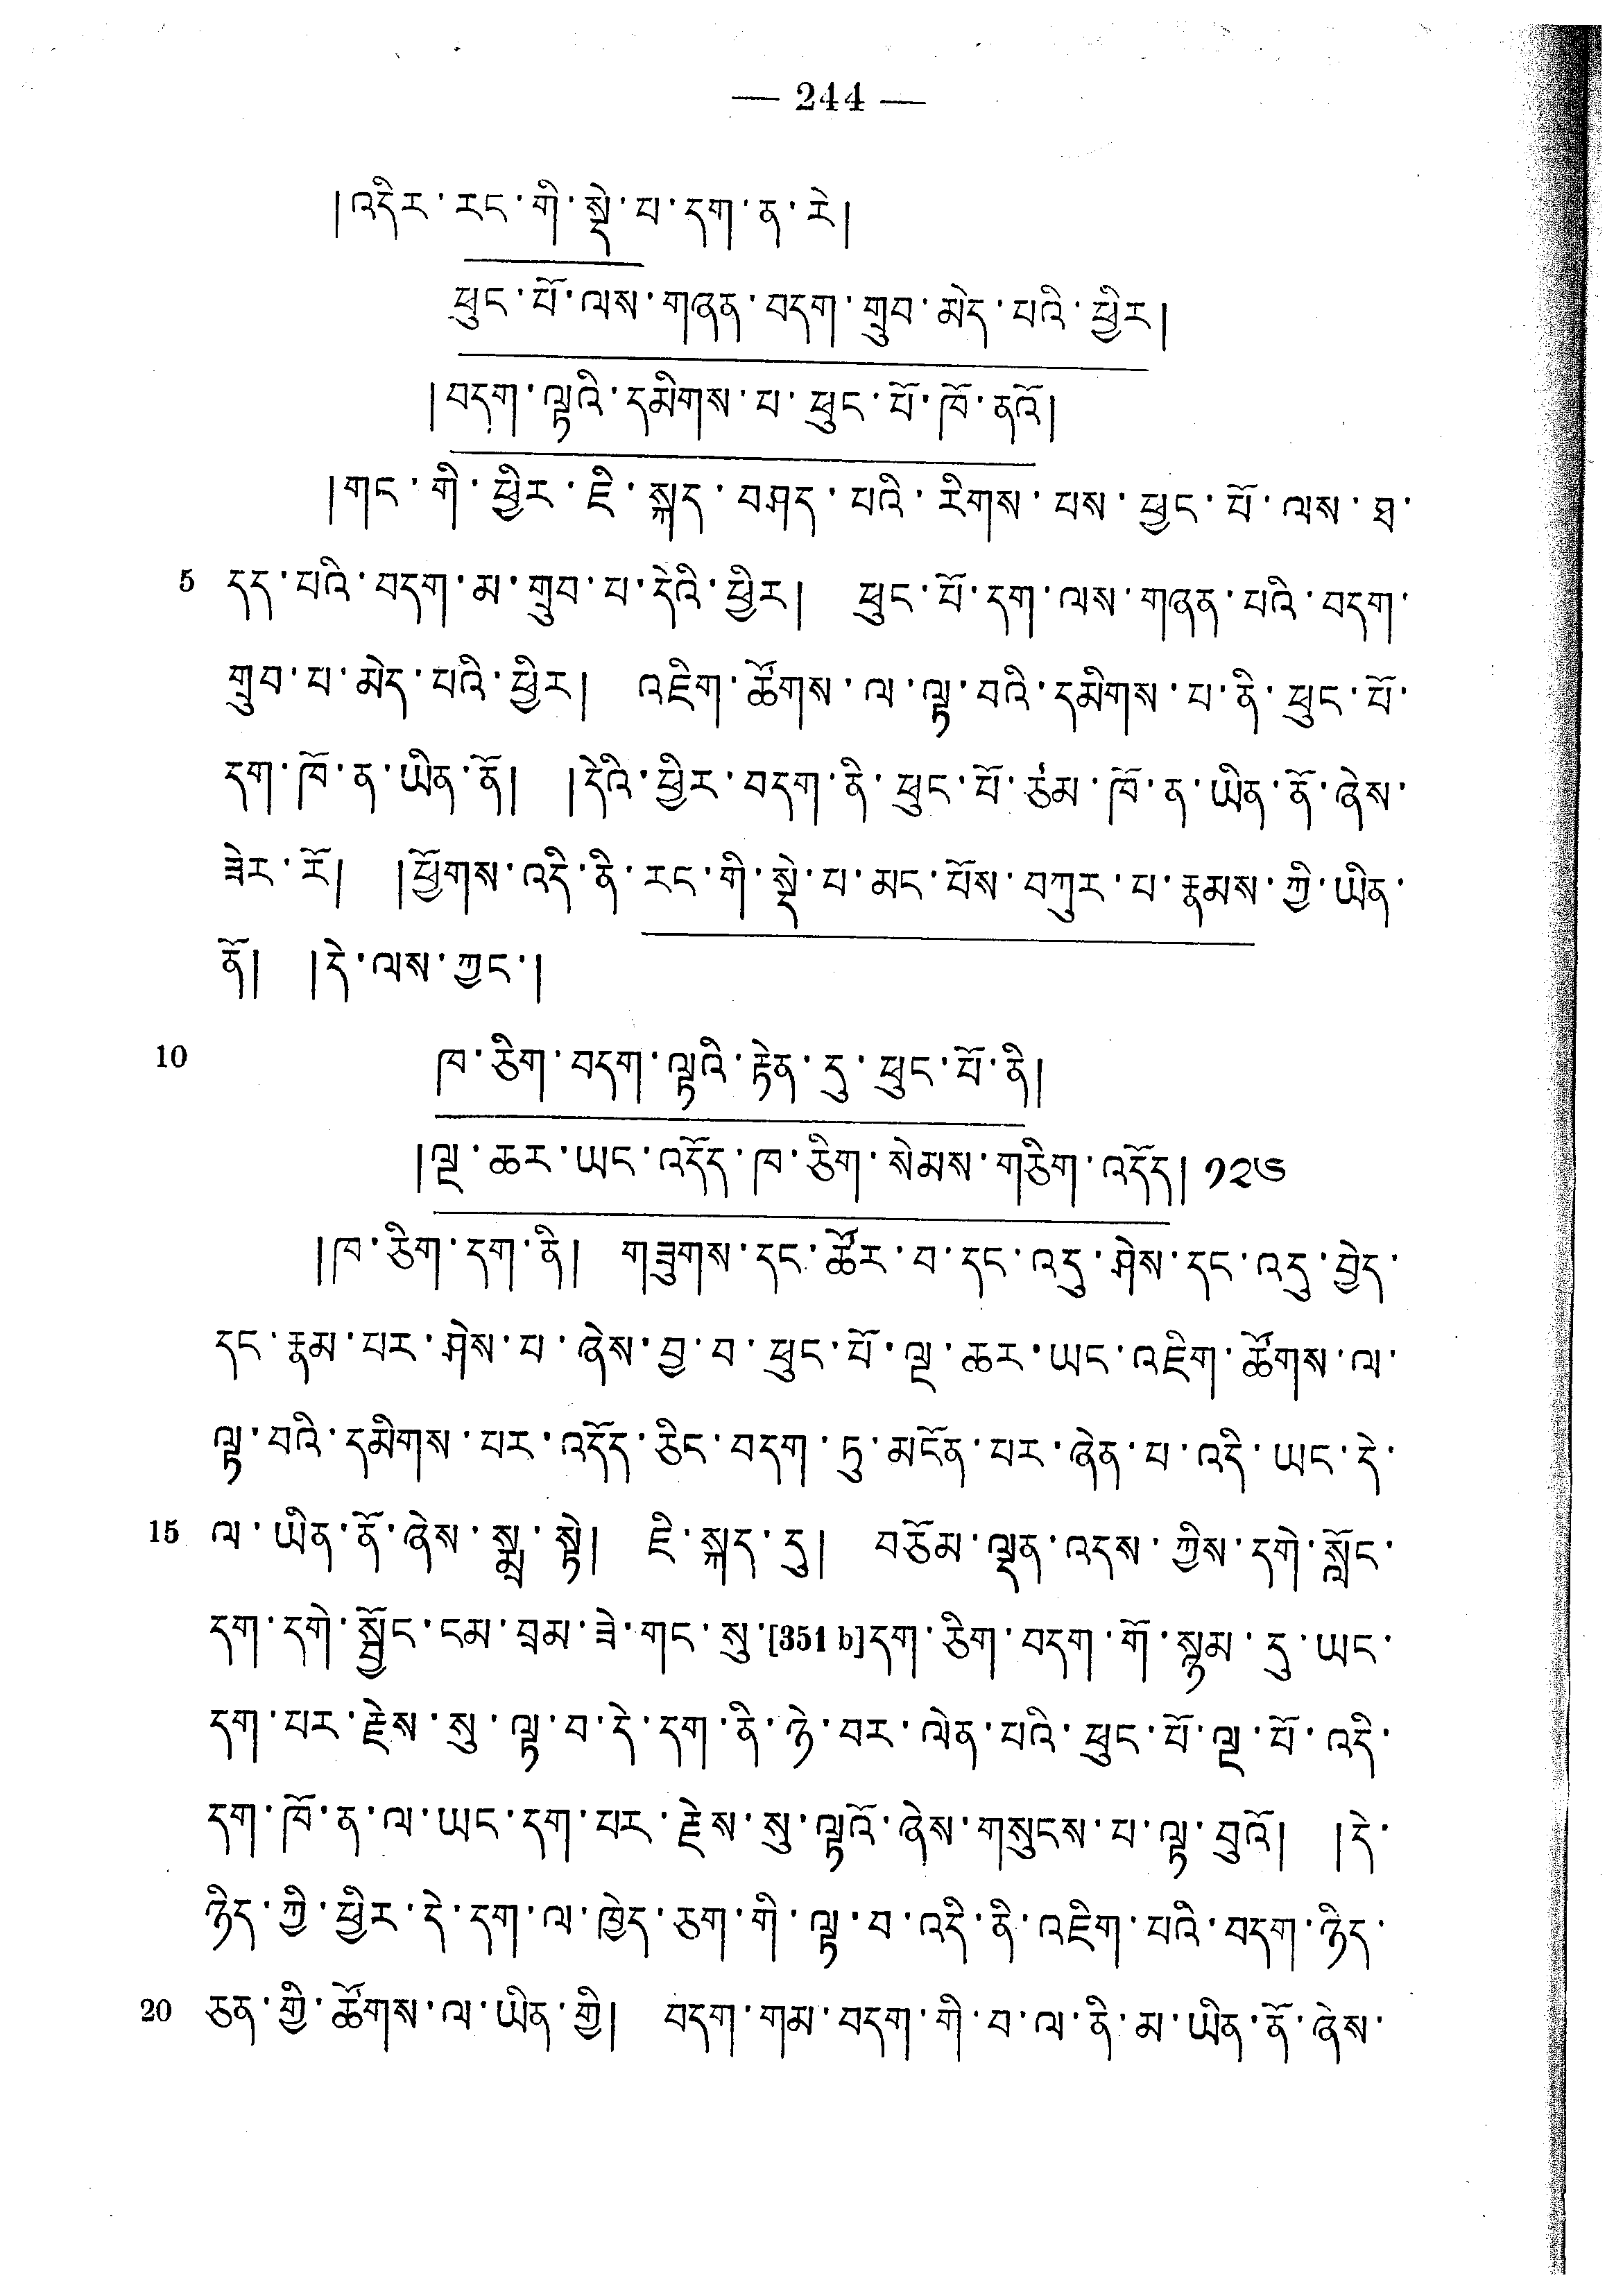 — 244 —
།འདིར་རང་གི་སྡེ་པ་དག་ན་རེ།
ཕུང་པོ་ལས་གཞན་བདག་གྲུབ་མེད་པའི་ཕྱིར།
།བདག་ལྟའི་དམིགས་པ་ཕུང་པོ་ཁོ་ནའོ།
།གང་གི་ཕྱིར་ཇི་སྐད་བཤད་པའི་རིགས་པས་ཕྱང་པོ་ལས་ཐ་
5 དད་པའི་བདག་མ་གྲུབ་པ་དེའི་ཕྱིར། ཕུང་པོ་དག་ལས་གཞན་པའི་བདག་
གྲུབ་པ་མེད་པའི་ཕྱིར། འཇིག་ཚོགས་ལ་ལྟ་བའི་དམིགས་པ་ནི་ཕུང་པོ་
དག་ཁོ་ན་ཡིན་ནོ། །དེའི་ཕྱིར་བདག་ནི་ཕུང་པོ་ཙམ་ཁོ་ན་ཡིན་ནོ་ཞེས་
ཟེར་རོ། །ཕྱོགས་འདི་ནི་རང་གི་སྡེ་པ་མང་པོས་བཀུར་པ་རྣམས་ཀྱི་ཡིན་
ནོ། །དེ་ལས་ཀྱང་།
10 ཁ་ཅིག་བདག་ལྟའི་རྟེན་དུ་ཕུང་པོ་ནི།
།ལྔ་ཆར་ཡང་འདོད་ཁ་ཅིག་སེམས་གཅིག་འདོད། ༡༢༦
།ཁ་ཅིག་དག་ནི། གཟུགས་དང་ཚོར་བ་དང་འདུ་ཤེས་དང་འདུ་བྱེད་
དང་རྣམ་པར་ཤེས་པ་ཞེས་བྱ་བ་ཕུང་པོ་ལྔ་ཆར་ཡང་འཇིག་ཚོགས་ལ་
ལྟ་བའི་དམིགས་པར་འདོད་ཅིང་བདག་ཏུ་མངོན་པར་ཞེན་པ་འདི་ཡང་དེ་
15 ལ་ཡིན་ནོ་ཞེས་སྨྲ་སྟེ། ཇི་སྐད་དུ། བཅོམ་ལྡན་འདས་ཀྱིས་དགེ་སློང་
དག་དགེ་སྦྱོང་ངམ་བྲམ་ཟེ་གང་སུ་[351 b]དག་ཅིག་བདག་གོ་སྙམ་དུ་ཡང་
དག་པར་རྗེས་སུ་ལྟ་བ་དེ་དག་ནི་ཉེ་བར་ལེན་པའི་ཕུང་པོ་ལྔ་པོ་འདི་
དག་ཁོ་ན་ལ་ཡང་དག་པར་རྗེས་སུ་ལྟའོ་ཞེས་གསུངས་པ་ལྟ་བུའོ། །དེ་
ཉིད་ཀྱི་ཕྱིར་དེ་དག་ལ་ཁྱེད་ཅག་གི་ལྟ་བ་འདི་ནི་འཇིག་པའི་བདག་ཉིད་
20 ཅན་གྱི་ཚོགས་ལ་ཡིན་གྱི། བདག་གམ་བདག་གི་བ་ལ་ནི་མ་ཡིན་ནོ་ཞེས་